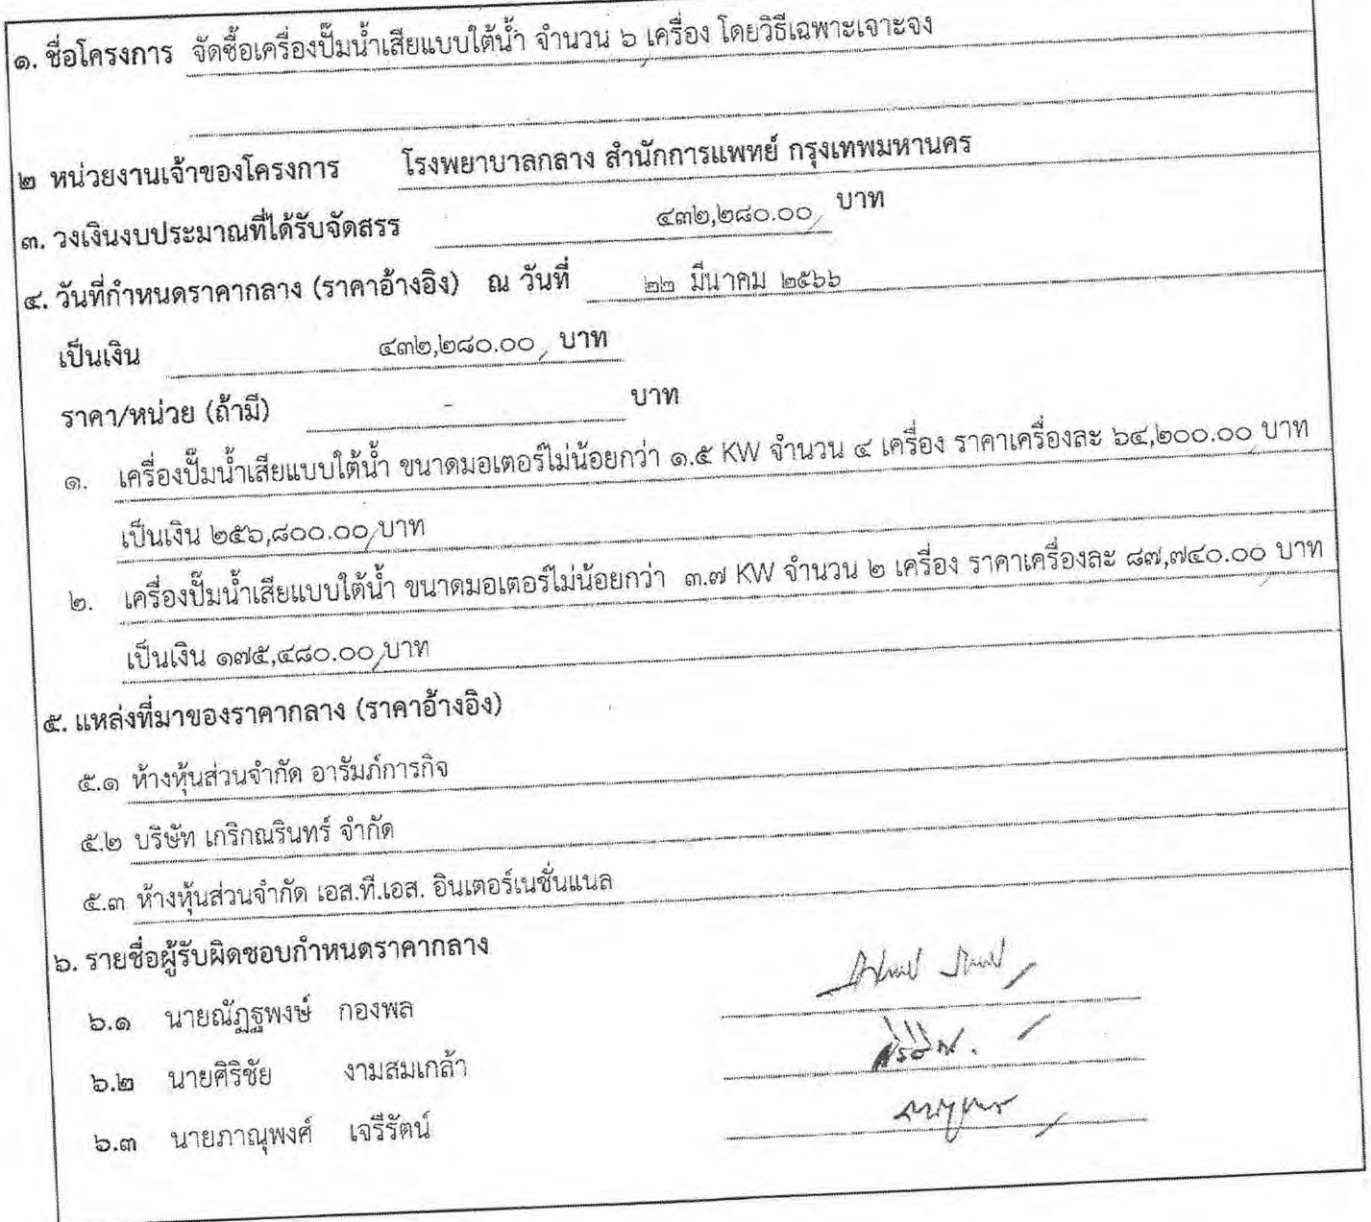 ๑. ชื่อโครงการ จัดซื้อเครื่องปั๊มน้ำเสียแบบใต้น้ำ จำนวน ๖ เครื่อง โดยวิธีเฉพาะเจาะจง
๒ หน่วยงานเจ้าของโครงการ โรงพยาบาลกลาง สำนักการแพทย์ กรุงเทพมหานคร
๓. วงเงินงบประมาณที่ได้รับจัดสรร ๔๓๒,๒๘๐.๐๐ บาท
๔. วันที่กำหนดราคากลาง (ราคาอ้างอิง) ณ วันที่ ๒๒ มีนาคม ๒๕๖๖
เป็นเงิน ๔๓๒,๒๘๐.๐๐ บาท
ราคา/หน่วย (ถ้ามี) - บาท
๑. เครื่องปั๊มน้ำเสียแบบใต้น้ำ ขนาดมอเตอร์ไม่น้อยกว่า ๑.๕ KW จำนวน ๔ เครื่อง ราคาเครื่องละ ๖๔,๒๐๐.๐๐ บาท
เป็นเงิน ๒๕๖,๘๐๐.๐๐ บาท
๒. เครื่องปั๊มน้ำเสียแบบใต้น้ำ ขนาดมอเตอร์ไม่น้อยกว่า ๓.๗ KW จำนวน ๒ เครื่อง ราคาเครื่องละ ๘๗,๗๔๐.๐๐ บาท
เป็นเงิน ๑๗๕,๔๘๐.๐๐ บาท
๕. แหล่งที่มาของราคากลาง (ราคาอ้างอิง)
๕.๑ ห้างหุ้นส่วนจำกัด อารัมภ์การกิจ
๕.๒ บริษัท เกริกณรินทร์ จำกัด
๕.๓ ห้างหุ้นส่วนจำกัด เอส.ที.เอส. อินเตอร์เนชั่นแนล
๖. รายชื่อผู้รับผิดชอบกำหนดราคากลาง
๖.๑ นายณัฏฐพงษ์ กองพล
๖.๒ นายศิริชัย งามสมเกล้า
๖.๓ นายภาณุพงศ์ เจรีรัตน์